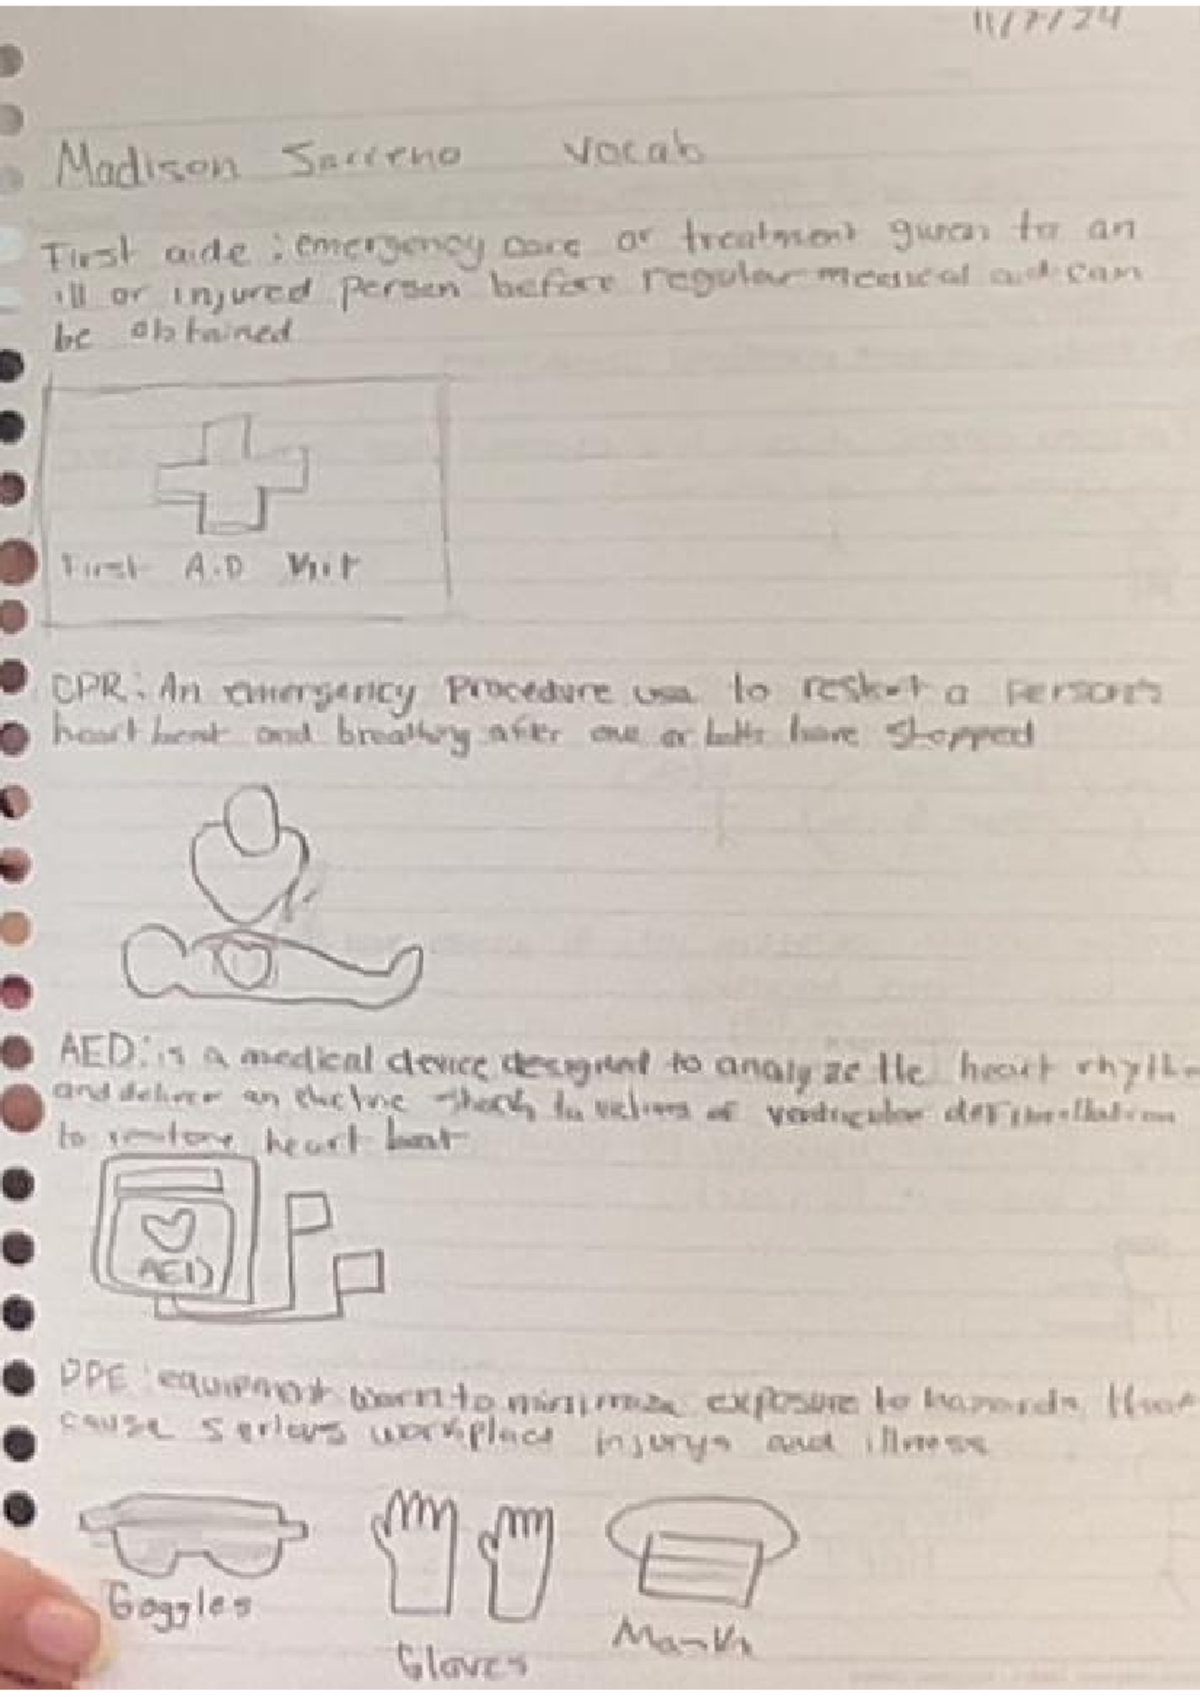 11/7/24
Madison Sarreno vocab
First aide : emergency care or treatment given to an
ill or injured person before regular medical aid can
be obtained
First A.D Kit
CPR: An emergency Procedure use to restart a person's
heart beat and breathing after one or both have stopped
AED: is a medical device designed to analyze the heart rhyth
and deliver an electric shock to victims of ventricular
to restore heart beat
AED
PPE: equipment worn to minimize exposure to hazards that
cause serious workplace injurys and illness
Goggles
Gloves
Mask